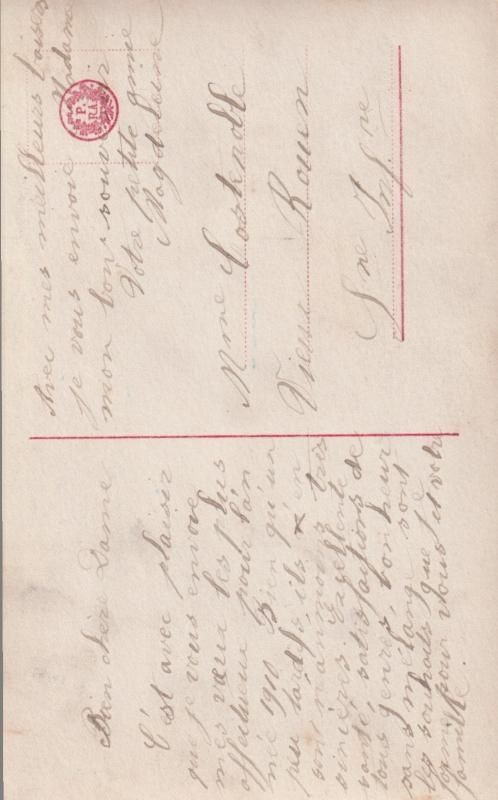 Bien chère Dame
C'est avec plaisir
que je vous envoie
mes vœux les plus
affectueux pour l'an
née 1910 Bien qu'un
peu tard s'ils n'en
sont néanmoins très
sincères. Excellente
santé, satisfactions de
tous genres, bonheur
sans mélange sont
les souhaits que je
forme pour vous et votre
famille.
Avec mes meilleurs baisers
je vous envoie Madame
mon bon souvenir
Votre petite amie
Magdeleine
P. RA
Mme
Vieux Rouen
Sne Infre